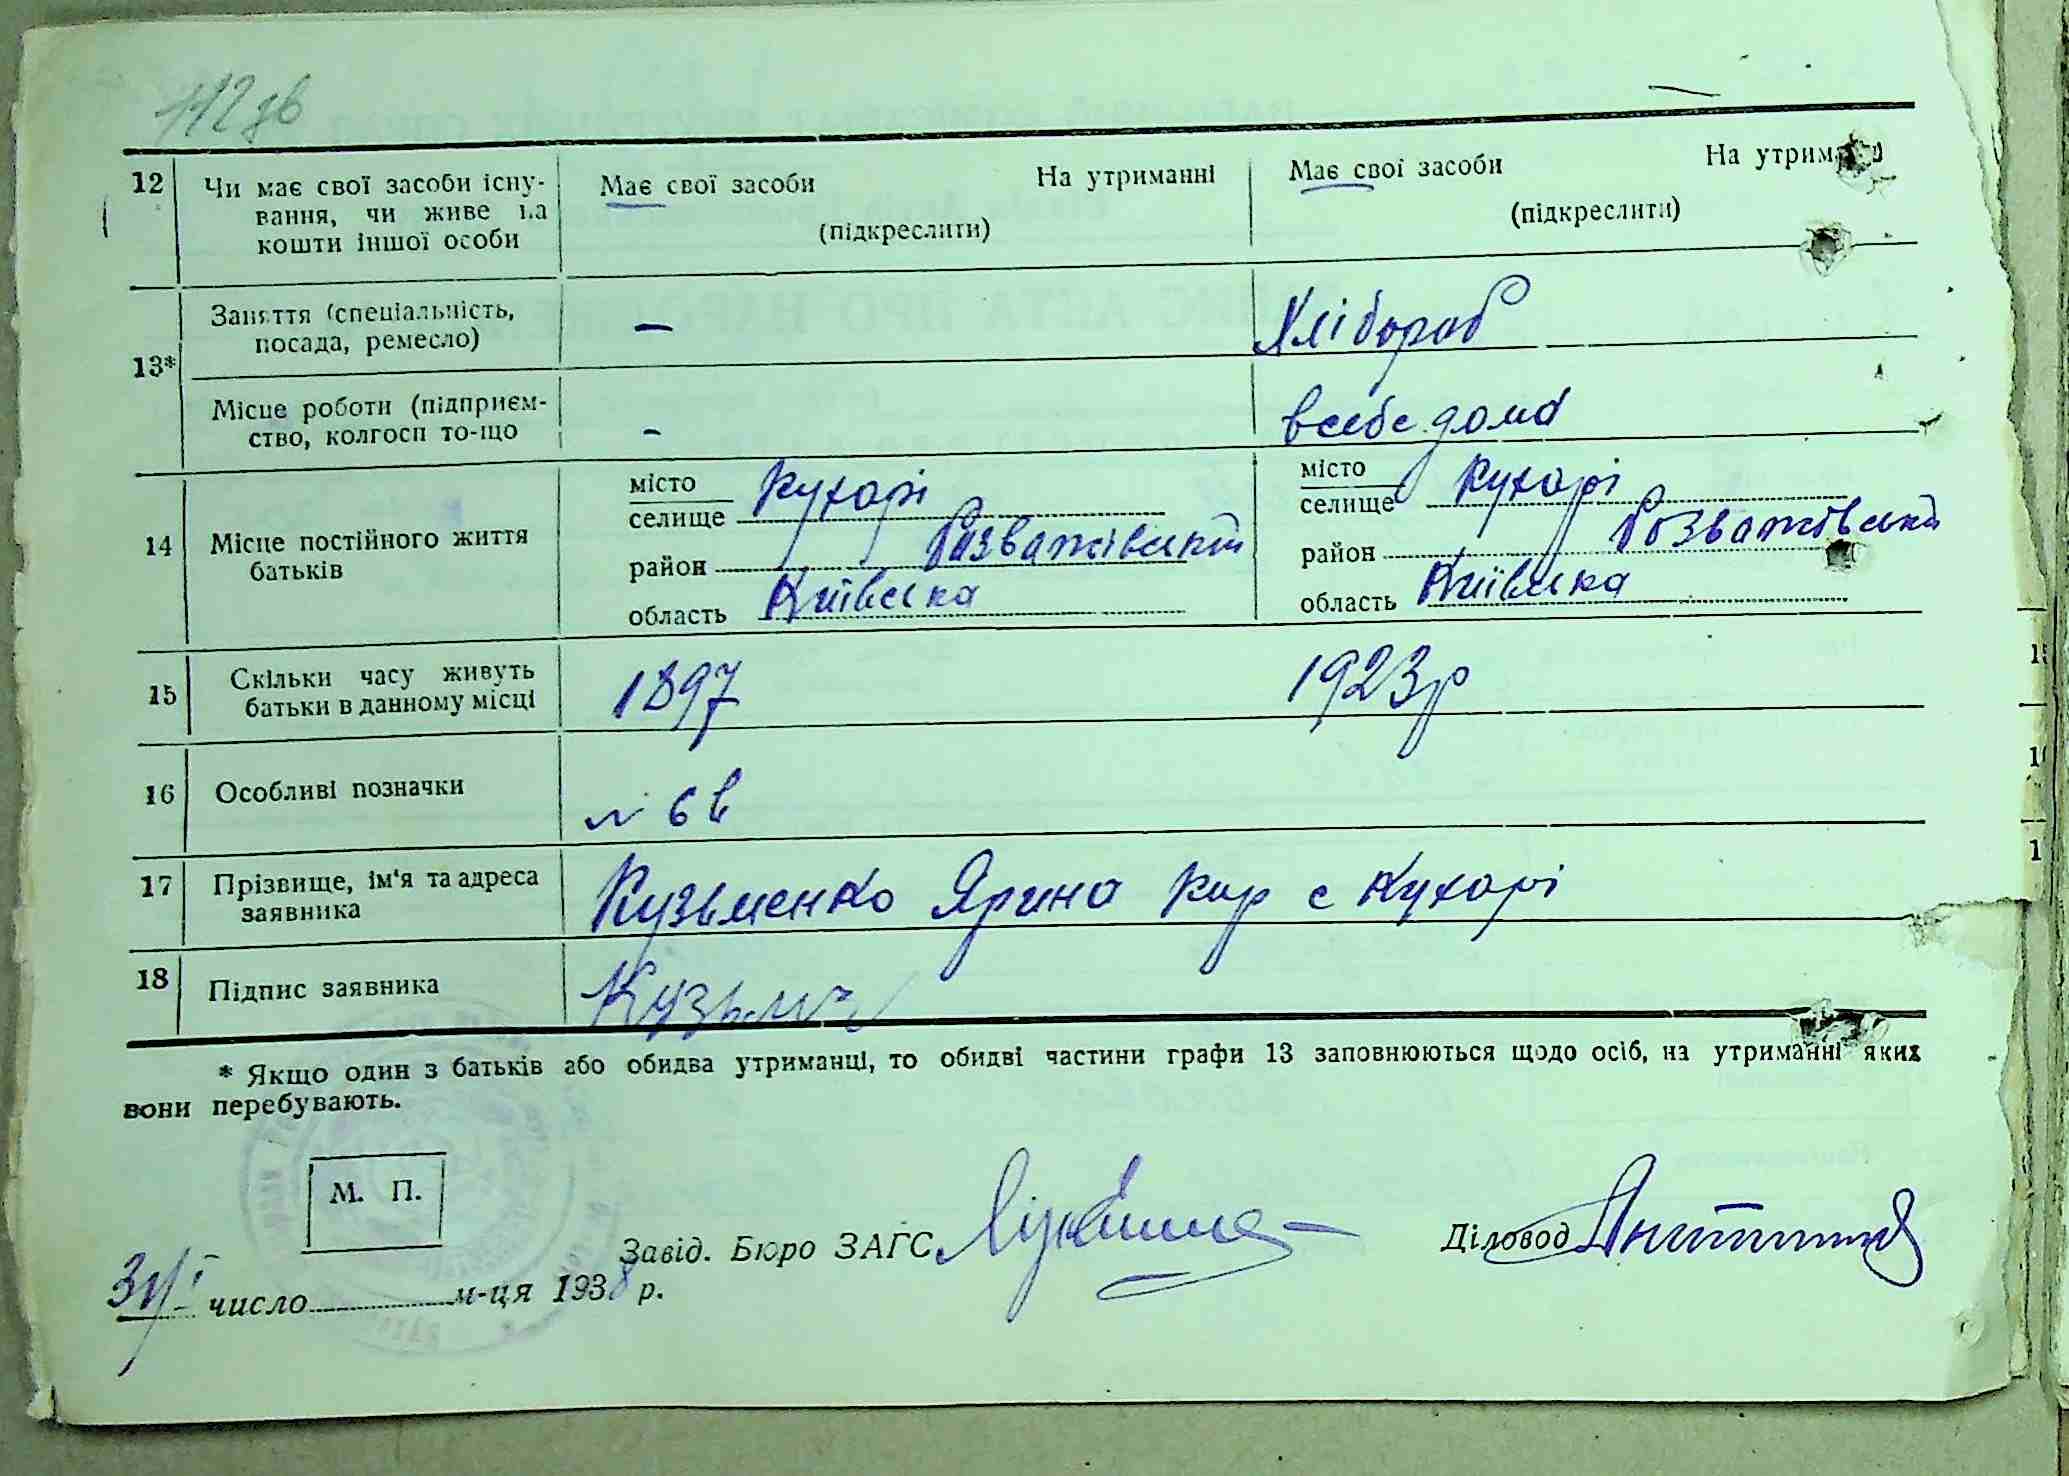 112 зв
12 Чи має свої засоби існу-
вання, чи живе на
кошти іншої особи
Має свої засоби На утриманні
(підкреслити)
Має свої засоби На утрим
(підкреслити)
13*
Заняття (спеціальність,
посада, ремесло)
—
Хлібороб
Місце роботи (підприєм-
ство, колгосп то-що
-
всебе дома
14 Місце постійного життя
батьків
місто
селище Кухарі
район Розважівський
область Київська
місто
селище Кухарі
район Розважівський
область Київська
15 Скільки часу живуть
батьки в данному місці
1897
1923р
16 Особливі позначки
6в
17 Прізвище, ім'я та адреса
заявника
Кузьменко Ярина Кир с Кухарі
18 Підпис заявника
* Якщо один з батьків або обидва утриманці, то обидві частини графи 13 заповнюються щодо осіб, на утриманні яких
вони перебувають.
М. П.
Завід. Бюро ЗАГС
Діловод
число м-ця 1938 р.